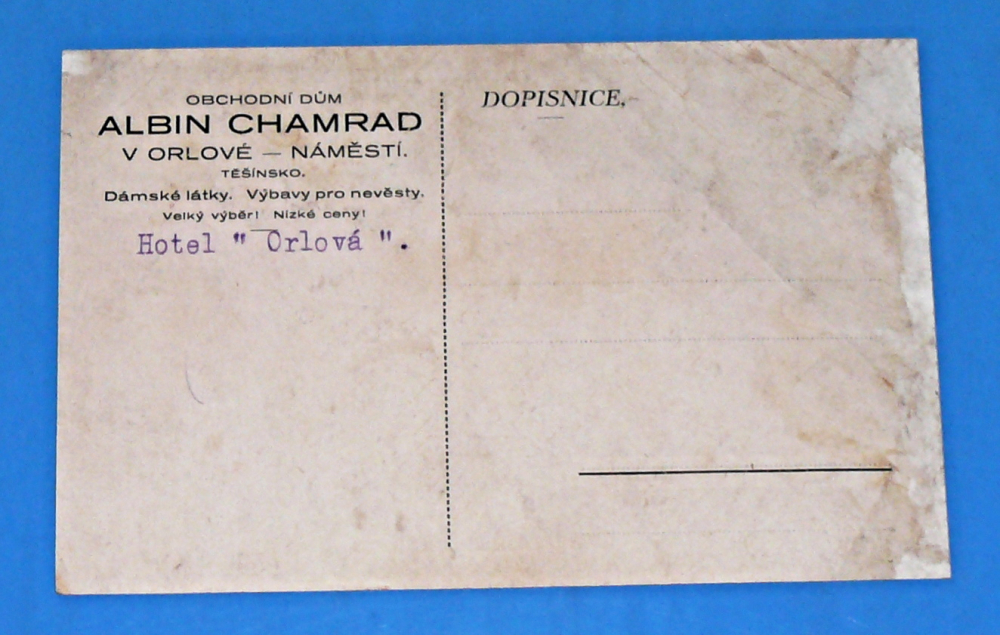 OBCHODNÍ DŮM
ALBIN CHAMRAD
V ORLOVÉ — NÁMĚSTÍ.
TĚŠÍNSKO.
Dámské látky. Výbavy pro nevěsty.
Velký výběr! Nízké ceny!
Hotel " Orlová ".
DOPISNICE.